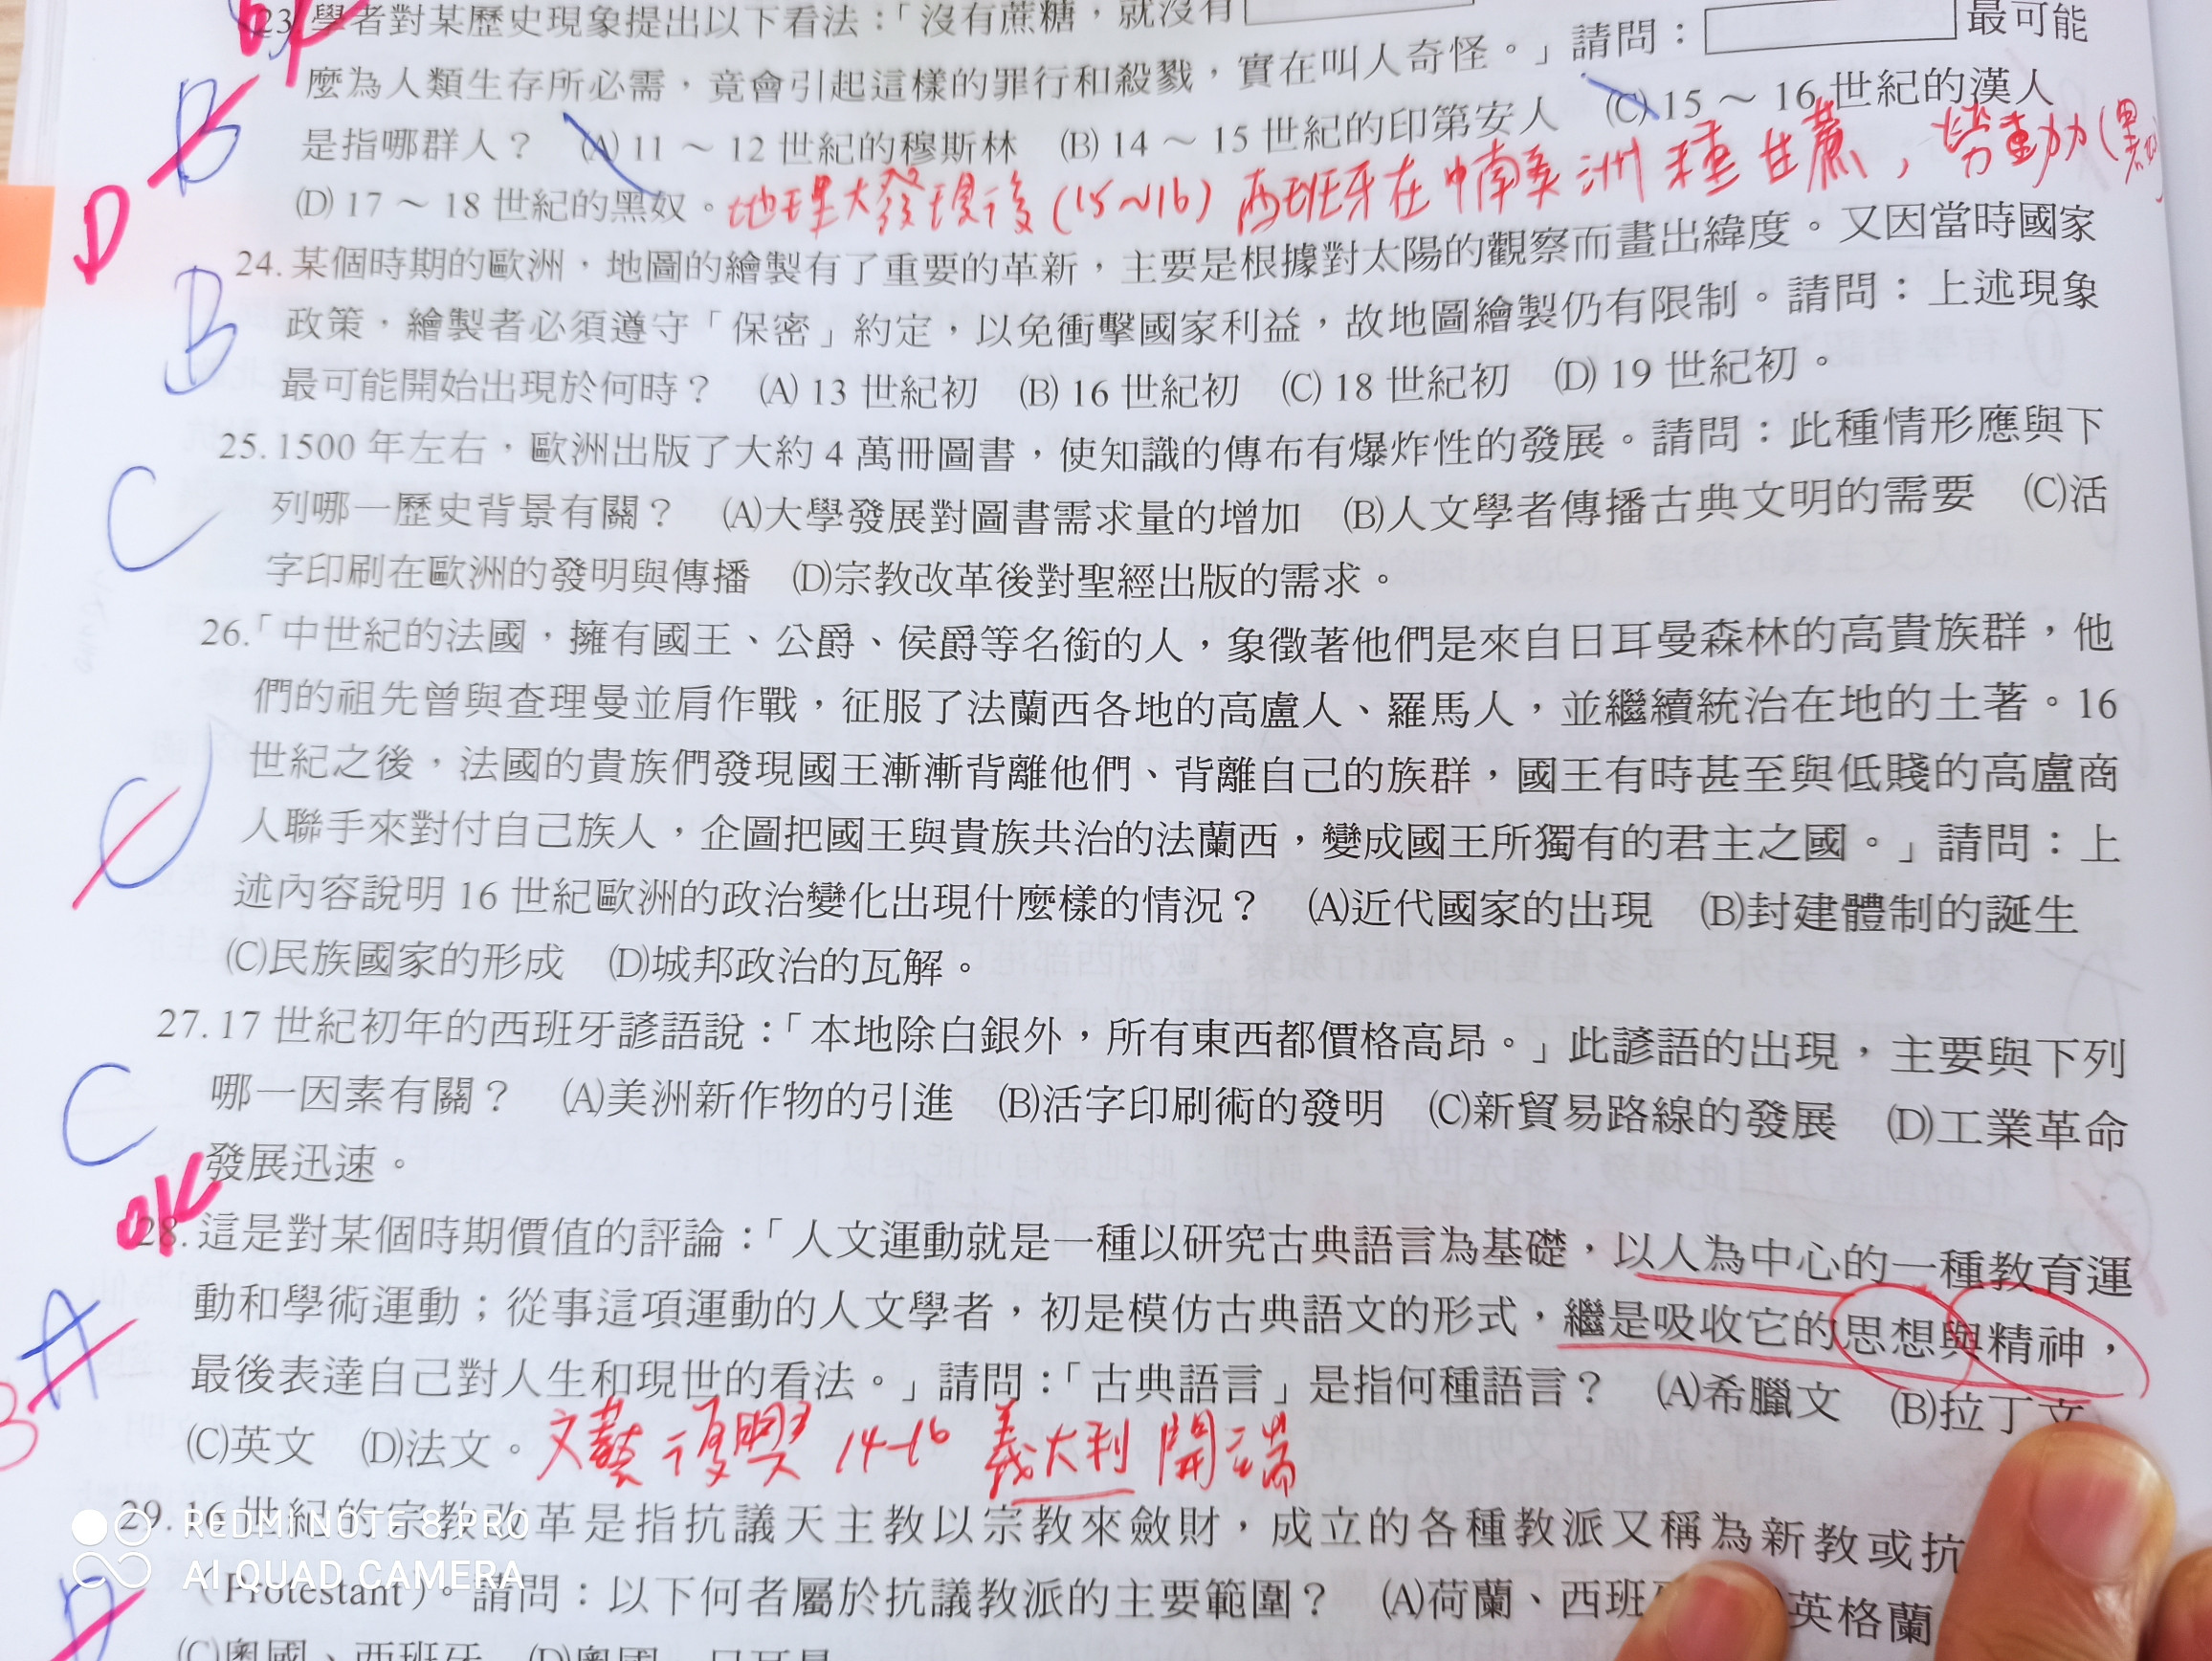 23.學者對某歷史現象提出以下看法：「沒有蔗糖，就沒有
麼為人類生存所必需，竟會引起這樣的罪行和殺戮，實在叫人奇怪。」請問：　　　最可能
是指哪群人？　(A) 11 ～ 12 世紀的穆斯林　(B) 14 ～ 15 世紀的印第安人　(C) 15 ～ 16 世紀的漢人
(D) 17 ～ 18 世紀的黑奴。地理大發現後(15~16) 西班牙在中南美洲種甘蔗，勞動力(黑奴
B
D
24. 某個時期的歐洲，地圖的繪製有了重要的革新，主要是根據對太陽的觀察而畫出緯度。又因當時國家
B
政策，繪製者必須遵守「保密」約定，以免衝擊國家利益，故地圖繪製仍有限制。請問：上述現象
最可能開始出現於何時？　(A) 13 世紀初　(B) 16 世紀初　(C) 18 世紀初　(D) 19 世紀初。
25. 1500 年左右，歐洲出版了大約 4 萬冊圖書，使知識的傳布有爆炸性的發展。請問：此種情形應與下
C
列哪一歷史背景有關？　(A)大學發展對圖書需求量的增加　(B)人文學者傳播古典文明的需要　(C)活
字印刷在歐洲的發明與傳播　(D)宗教改革後對聖經出版的需求。
26.「中世紀的法國，擁有國王、公爵、侯爵等名銜的人，象徵著他們是來自日耳曼森林的高貴族群，他
們的祖先曾與查理曼並肩作戰，征服了法蘭西各地的高盧人、羅馬人，並繼續統治在地的土著。16
世紀之後，法國的貴族們發現國王漸漸背離他們、背離自己的族群，國王有時甚至與低賤的高盧商
C
人聯手來對付自己族人，企圖把國王與貴族共治的法蘭西，變成國王所獨有的君主之國。」請問：上
述內容說明 16 世紀歐洲的政治變化出現什麼樣的情況？　(A)近代國家的出現　(B)封建體制的誕生
(C)民族國家的形成　(D)城邦政治的瓦解。
27. 17 世紀初年的西班牙諺語說：「本地除白銀外，所有東西都價格高昂。」此諺語的出現，主要與下列
C
哪一因素有關？　(A)美洲新作物的引進　(B)活字印刷術的發明　(C)新貿易路線的發展　(D)工業革命
發展迅速。
OK
28. 這是對某個時期價值的評論：「人文運動就是一種以研究古典語言為基礎，以人為中心的一種教育運
動和學術運動；從事這項運動的人文學者，初是模仿古典語文的形式，繼是吸收它的思想與精神，
A
B
最後表達自己對人生和現世的看法。」請問：「古典語言」是指何種語言？　(A)希臘文　(B)拉丁文
(C)英文　(D)法文。文藝復興 14-16 義大利 開端
29. 16 世紀的宗教改革是指抗議天主教以宗教來斂財，成立的各種教派又稱為新教或抗
(Protestant)。請問：以下何者屬於抗議教派的主要範圍？　(A)荷蘭、西班　英格蘭
D
(C)奧國、西班牙　(D)奧國、日耳曼
REDMI NOTE 8 PRO
AI QUAD CAMERA